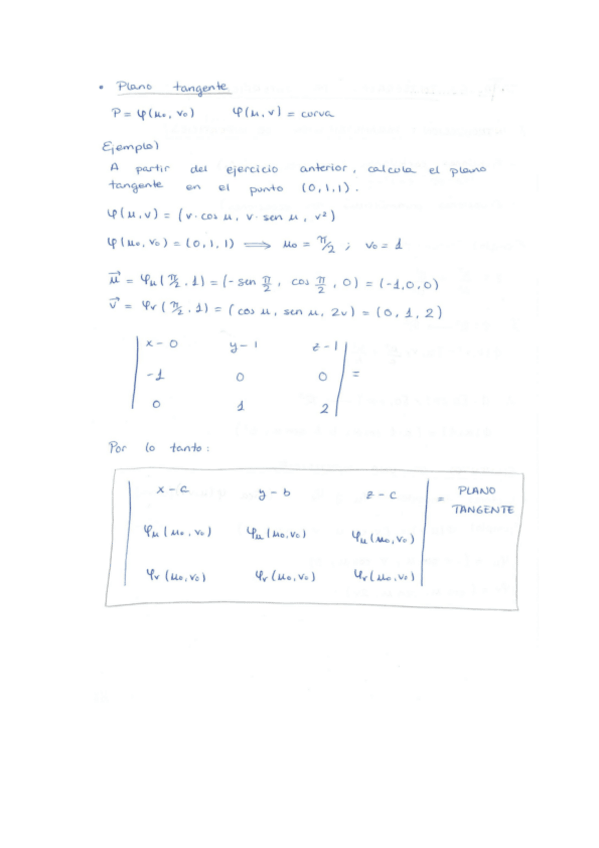 • Plano tangente
P = φ(μ₀, v₀) φ(μ, v) = curva
Ejemplo)
A partir del ejercicio anterior, calcula el plano
tangente en el punto (0,1,1).
φ(μ,v) = (v·cos μ, v·sen μ, v²)
φ(μ₀, v₀) = (0,1,1) ⟹ μ₀ = π/2 ; v₀ = 1
μ⃗ = φμ(π/2, 1) = (-sen π/2, cos π/2, 0) = (-1,0,0)
v⃗ = φv(π/2, 1) = (cos μ, sen μ, 2v) = (0, 1, 2)
| x-0 y-1 z-1 |
| -1 0 0 | =
| 0 1 2 |
Por lo tanto:
| x-c y-b z-c | = PLANO TANGENTE
| φμ(μ₀,v₀) φμ(μ₀,v₀) φμ(μ₀,v₀) |
| φv(μ₀,v₀) φv(μ₀,v₀) φv(μ₀,v₀) |